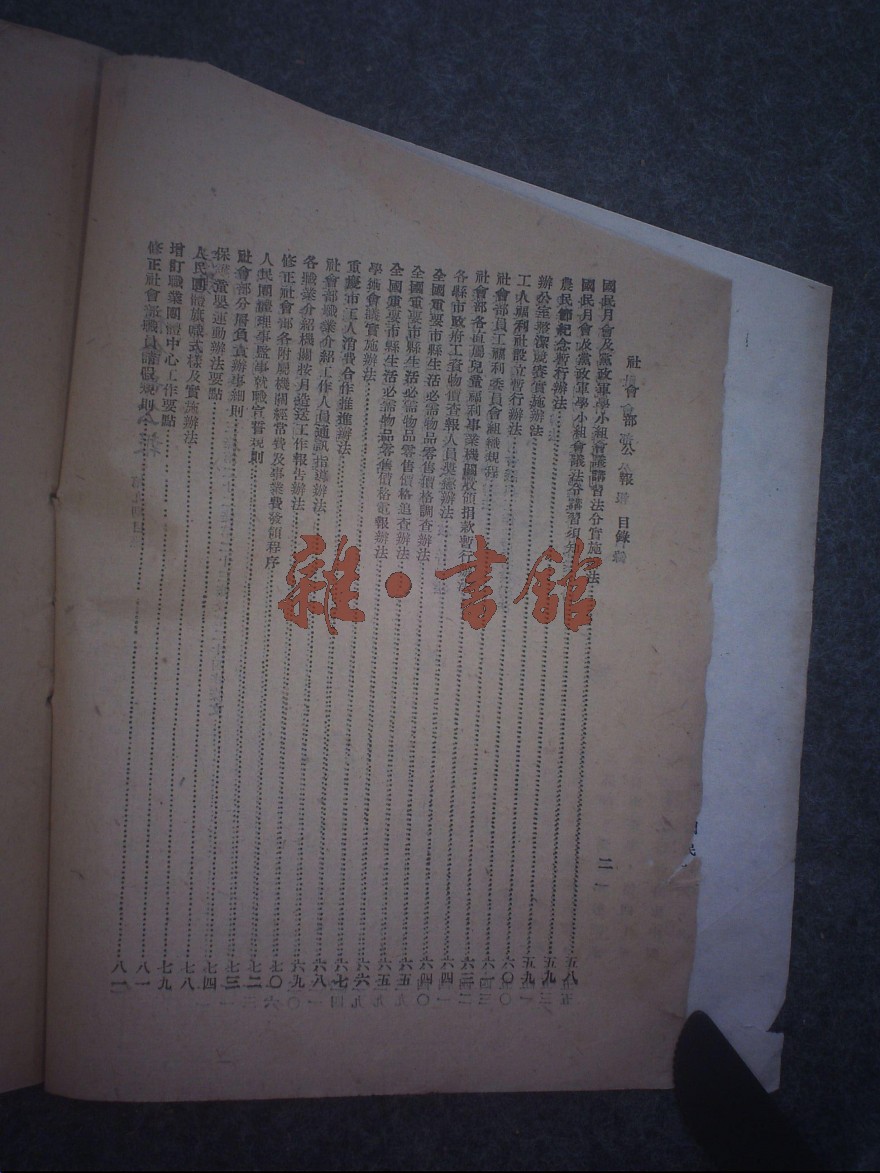 社會部公報 目錄 二
國民月會及黨政軍學小組會議講習法令實施辦法 五八
國民月會及黨政軍學小組會議法令講習須知 五九
農民節紀念暫行辦法 五九
辦公室整潔競賽實施辦法 六〇
工人福利社設立暫行辦法 六一
社會部員工福利委員會組織規程 六三
社會部各直屬兒童福利事業機關收領捐款暫行辦法 六四
各縣市政府工資物價查報人員獎懲辦法 六四
全國重要市縣生活必需物品零售價格調查辦法 六五
全國重要市縣生活必需物品零售價格追查辦法 六五
全國重要市縣生活必需物品零售價格電報辦法 六六
學術會議實施辦法 六七
重慶市工人消費合作推進辦法 六八
社會部職業介紹工作人員通訊指導辦法 六九
各職業介紹機關按月造送工作報告辦法 七〇
修正社會部各附屬機關經常費及事業費發領程序 七二
人民團體理事監事就職宣誓規則 七三
社會部分層負責辦事細則 七四
保護童嬰運動辦法要點 七八
人民團體旗幟式樣及實施辦法 七九
增訂職業團體中心工作要點 八一
修正社會部職員請假規則 八二
雜·書館